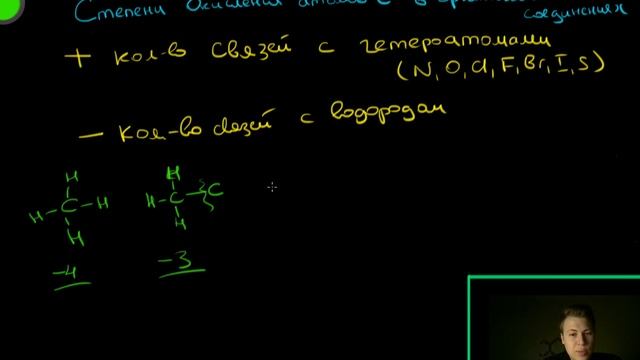 Степени Окисления атомов С в
соединениях
+ кол-во связей с гетероатомами
(N, O, Cl, F, Br, I, S)
- кол-во связей с водородом
H H
H-C-H H-C-C
H H
-4 -3